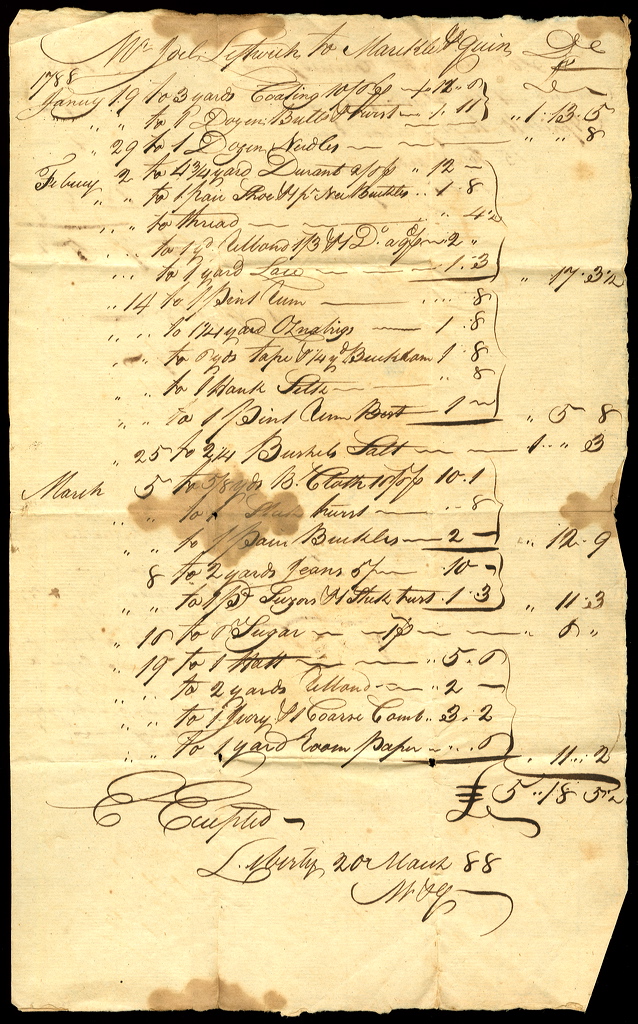 Mr Joel Leftwich to Markle & Quin Dr
1788
Janury 19 to 3 yards Coating 10/6 1 12 6
" " to 1 Dozen Butts & twist 1 11 " 1 13 5
" 29 to 1 Dozen Needles " " 8
Febuery 2 to 4 3/4 yard Durant " 12
" " to 1 pair Shoe & 1 pr Nee Buckles 1 8
" " to thread " 4 1/2
" " to 1 yd Ribbond 1/3 & 1 Do a 9d 2 "
" " to 1 yard Lace 1 3 " 17 3 1/2
" 14 to 1 pint Rum 8
" " to 1 1/4 yard Oznabrigs 1 8
" " to 6 yds tape & 1/4 yd Buckham 1 8
" " to 1 Hank Silk " 8
" " to 1 Pint Rum Best 1 " 5 8
" 25 to 2 1/4 Bushels Salt 1 " 3
March 5 to 5/8 yds B. Cloth 10 1
" " to 1 Stick twist 8
" " to 1 pair Buckles 2 " 12 9
8 to 2 yards Jeans 5/ 10
" " to 1 pr Sizors & 1 Stick twist 1 3 " 11 3
" 16 to 6 Sugar 1/ " 6 "
" 19 to 1 Hatt 5 6
" " to 2 yards Ribbond 2
" " to 1 Ivory & 1 Coarse Comb 3 2
" " To 1 yard Room Paper 6 " 11 2
£ 5 18 5 1/2
E Excepted
Liberty 20 March 88
M & Q